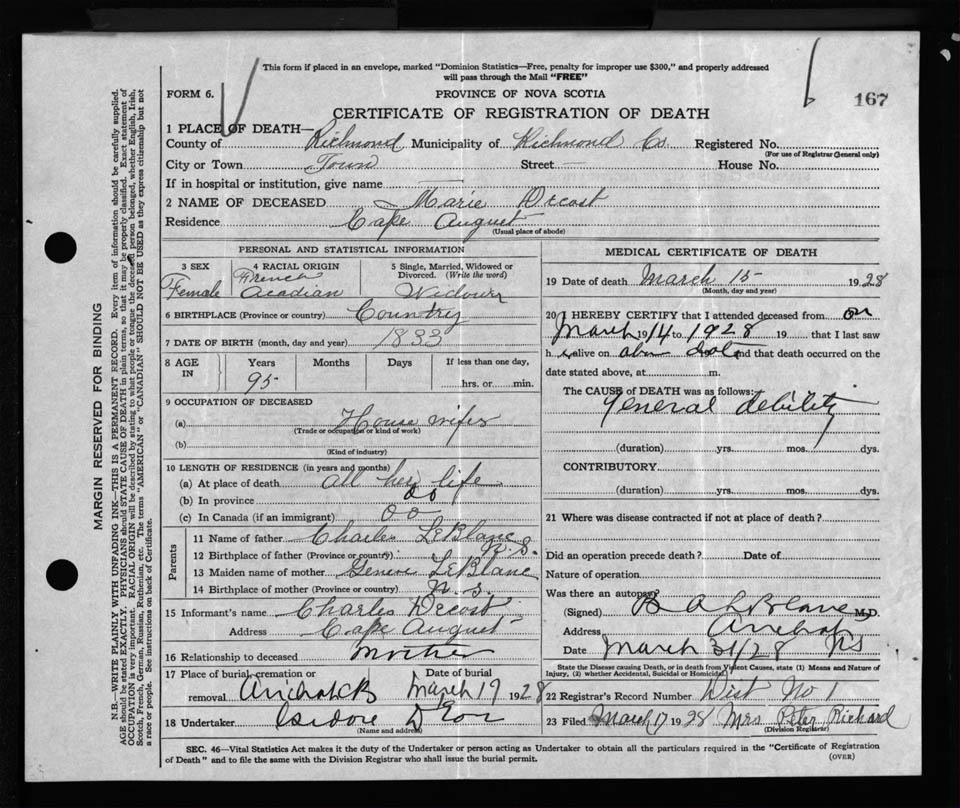 This form if placed in an envelope, marked "Dominion Statistics—Free, penalty for improper use $300," and properly addressed
will pass through the Mail "FREE"
FORM 6.
PROVINCE OF NOVA SCOTIA
167
CERTIFICATE OF REGISTRATION OF DEATH
1 PLACE OF DEATH—
County of Richmond Municipality of Richmond Co. Registered No.
(For use of Registrar General only)
City or Town Town Street — House No.
If in hospital or institution, give name —
2 NAME OF DECEASED Marie Decost
Residence Cape August
(Usual place of abode)
PERSONAL AND STATISTICAL INFORMATION
3 SEX
Female
4 RACIAL ORIGIN
French
Acadian
5 Single, Married, Widowed or
Divorced. (Write the word)
Widower
6 BIRTHPLACE (Province or country) Country
7 DATE OF BIRTH (month, day and year) 1833
8 AGE
IN
Years
Months
Days
If less than one day,
95
hrs. or min.
9 OCCUPATION OF DECEASED
(a) House wife
(Trade or occupation or kind of work)
(b)
(Kind of industry)
10 LENGTH OF RESIDENCE (in years and months)
(a) At place of death all her life
(b) In province do
(c) In Canada (if an immigrant)
Parents
11 Name of father Charles LeBlanc
12 Birthplace of father (Province or country)
13 Maiden name of mother Geneve LeBlanc
14 Birthplace of mother (Province or country) N.S.
15 Informant's name Charles Decost
Address Cape August
16 Relationship to deceased Mother
17 Place of burial, cremation or
removal
Date of burial
March 17 1928
18 Undertaker Isidore
(Name and address)
MEDICAL CERTIFICATE OF DEATH
19 Date of death March 15 1928
(Month, day and year)
20 I HEREBY CERTIFY that I attended deceased from on
March 1914 to 1928 19 that I last saw
h er alive on abv dat and that death occurred on the
date stated above, at m.
The CAUSE of DEATH was as follows:
General debility
(duration) yrs. mos. dys.
CONTRIBUTORY
(duration) yrs. mos. dys.
21 Where was disease contracted if not at place of death?
Did an operation precede death? Date of
Nature of operation
Was there an autopsy?
(Signed) B A LeBlanc M.D.
Address Arichat
Date March 31/28 NS
State the Disease causing Death, or in death from Violent Causes, state (1) Means and Nature of
Injury, (2) whether Accidental, Suicidal or Homicidal.
22 Registrar's Record Number Dist No 1
23 Filed March 17 1928 Mrs Peter Richard
(Division Registrar)
SEC. 46—Vital Statistics Act makes it the duty of the Undertaker or person acting as Undertaker to obtain all the particulars required in the "Certificate of Registration
of Death" and to file the same with the Division Registrar who shall issue the burial permit.
(OVER)
MARGIN RESERVED FOR BINDING
N.B.—WRITE PLAINLY WITH UNFADING INK—THIS IS A PERMANENT RECORD. Every item of information should be carefully supplied.
AGE should be stated EXACTLY. PHYSICIANS should STATE CAUSE OF DEATH in plain terms, so that it may be properly classified. Exact statement of
OCCUPATION is very important. RACIAL ORIGIN will be described by stating to what people or tongue the deceased person belonged, whether English, Irish,
Scotch, French, German, Russian, Ruthenian, etc. The terms "AMERICAN" or "CANADIAN" SHOULD NOT BE USED as they express citizenship but not
a race or people. See instructions on back of Certificate.